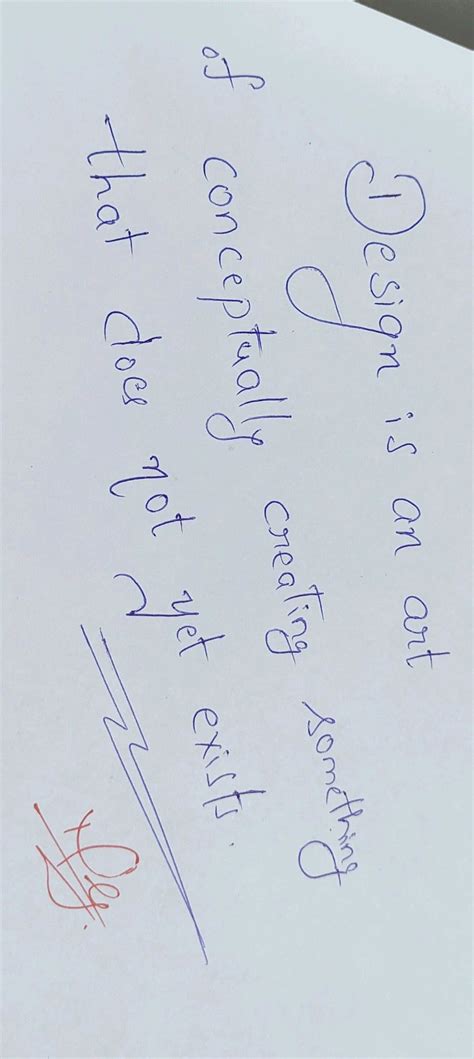 Design is an art
of conceptually creating something
that does not yet exists.